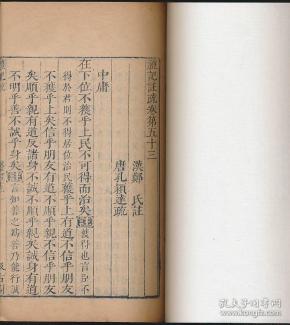 禮記註疏卷第五十三
漢鄭 氏註
唐孔穎達疏
中庸
在下位不獲乎上民不可得而治矣獲得也言臣不
得於君則不得居位治民獲乎上有道不信乎朋友
不獲乎上矣信乎朋友有道不順乎親不信乎朋友
矣順乎親有道反諸身不誠不順乎親矣誠身有道
不明乎善不誠乎身矣言知善之為善乃能行誠
汲古閣
孔夫子旧书网